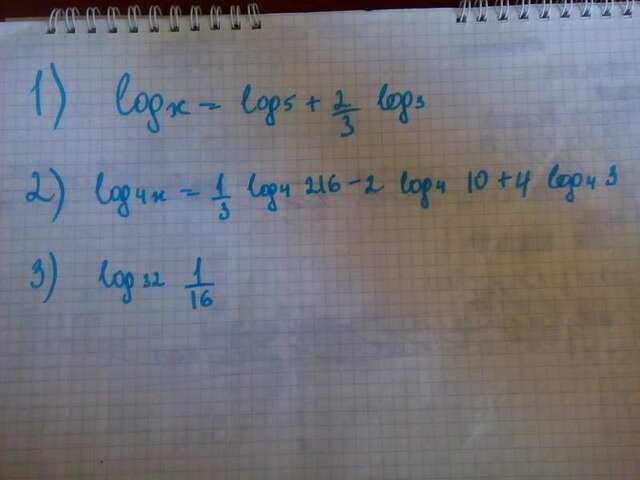 1) log x = log 5 + 2/3 log 3
2) log₄ x = 1/3 log₄ 216 - 2 log₄ 10 + 4 log₄ 3
3) log₃₂ 1/16